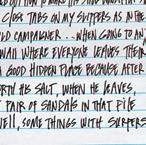 CLOSE TABS ON MY SLIPPERS AS IN THE
LD CAMPAIGNER.. WHEN GOING TO AN
WAII WHERE EVERYONE LEAVES THEIR
A GOOD HIDDEN PLACE BECAUSE AFTER
RTH HIS SALT, WHEN HE LEAVES,
T PAIR OF SANDALS IN THAT PILE
ELL, SOME THINGS WITH SURFERS